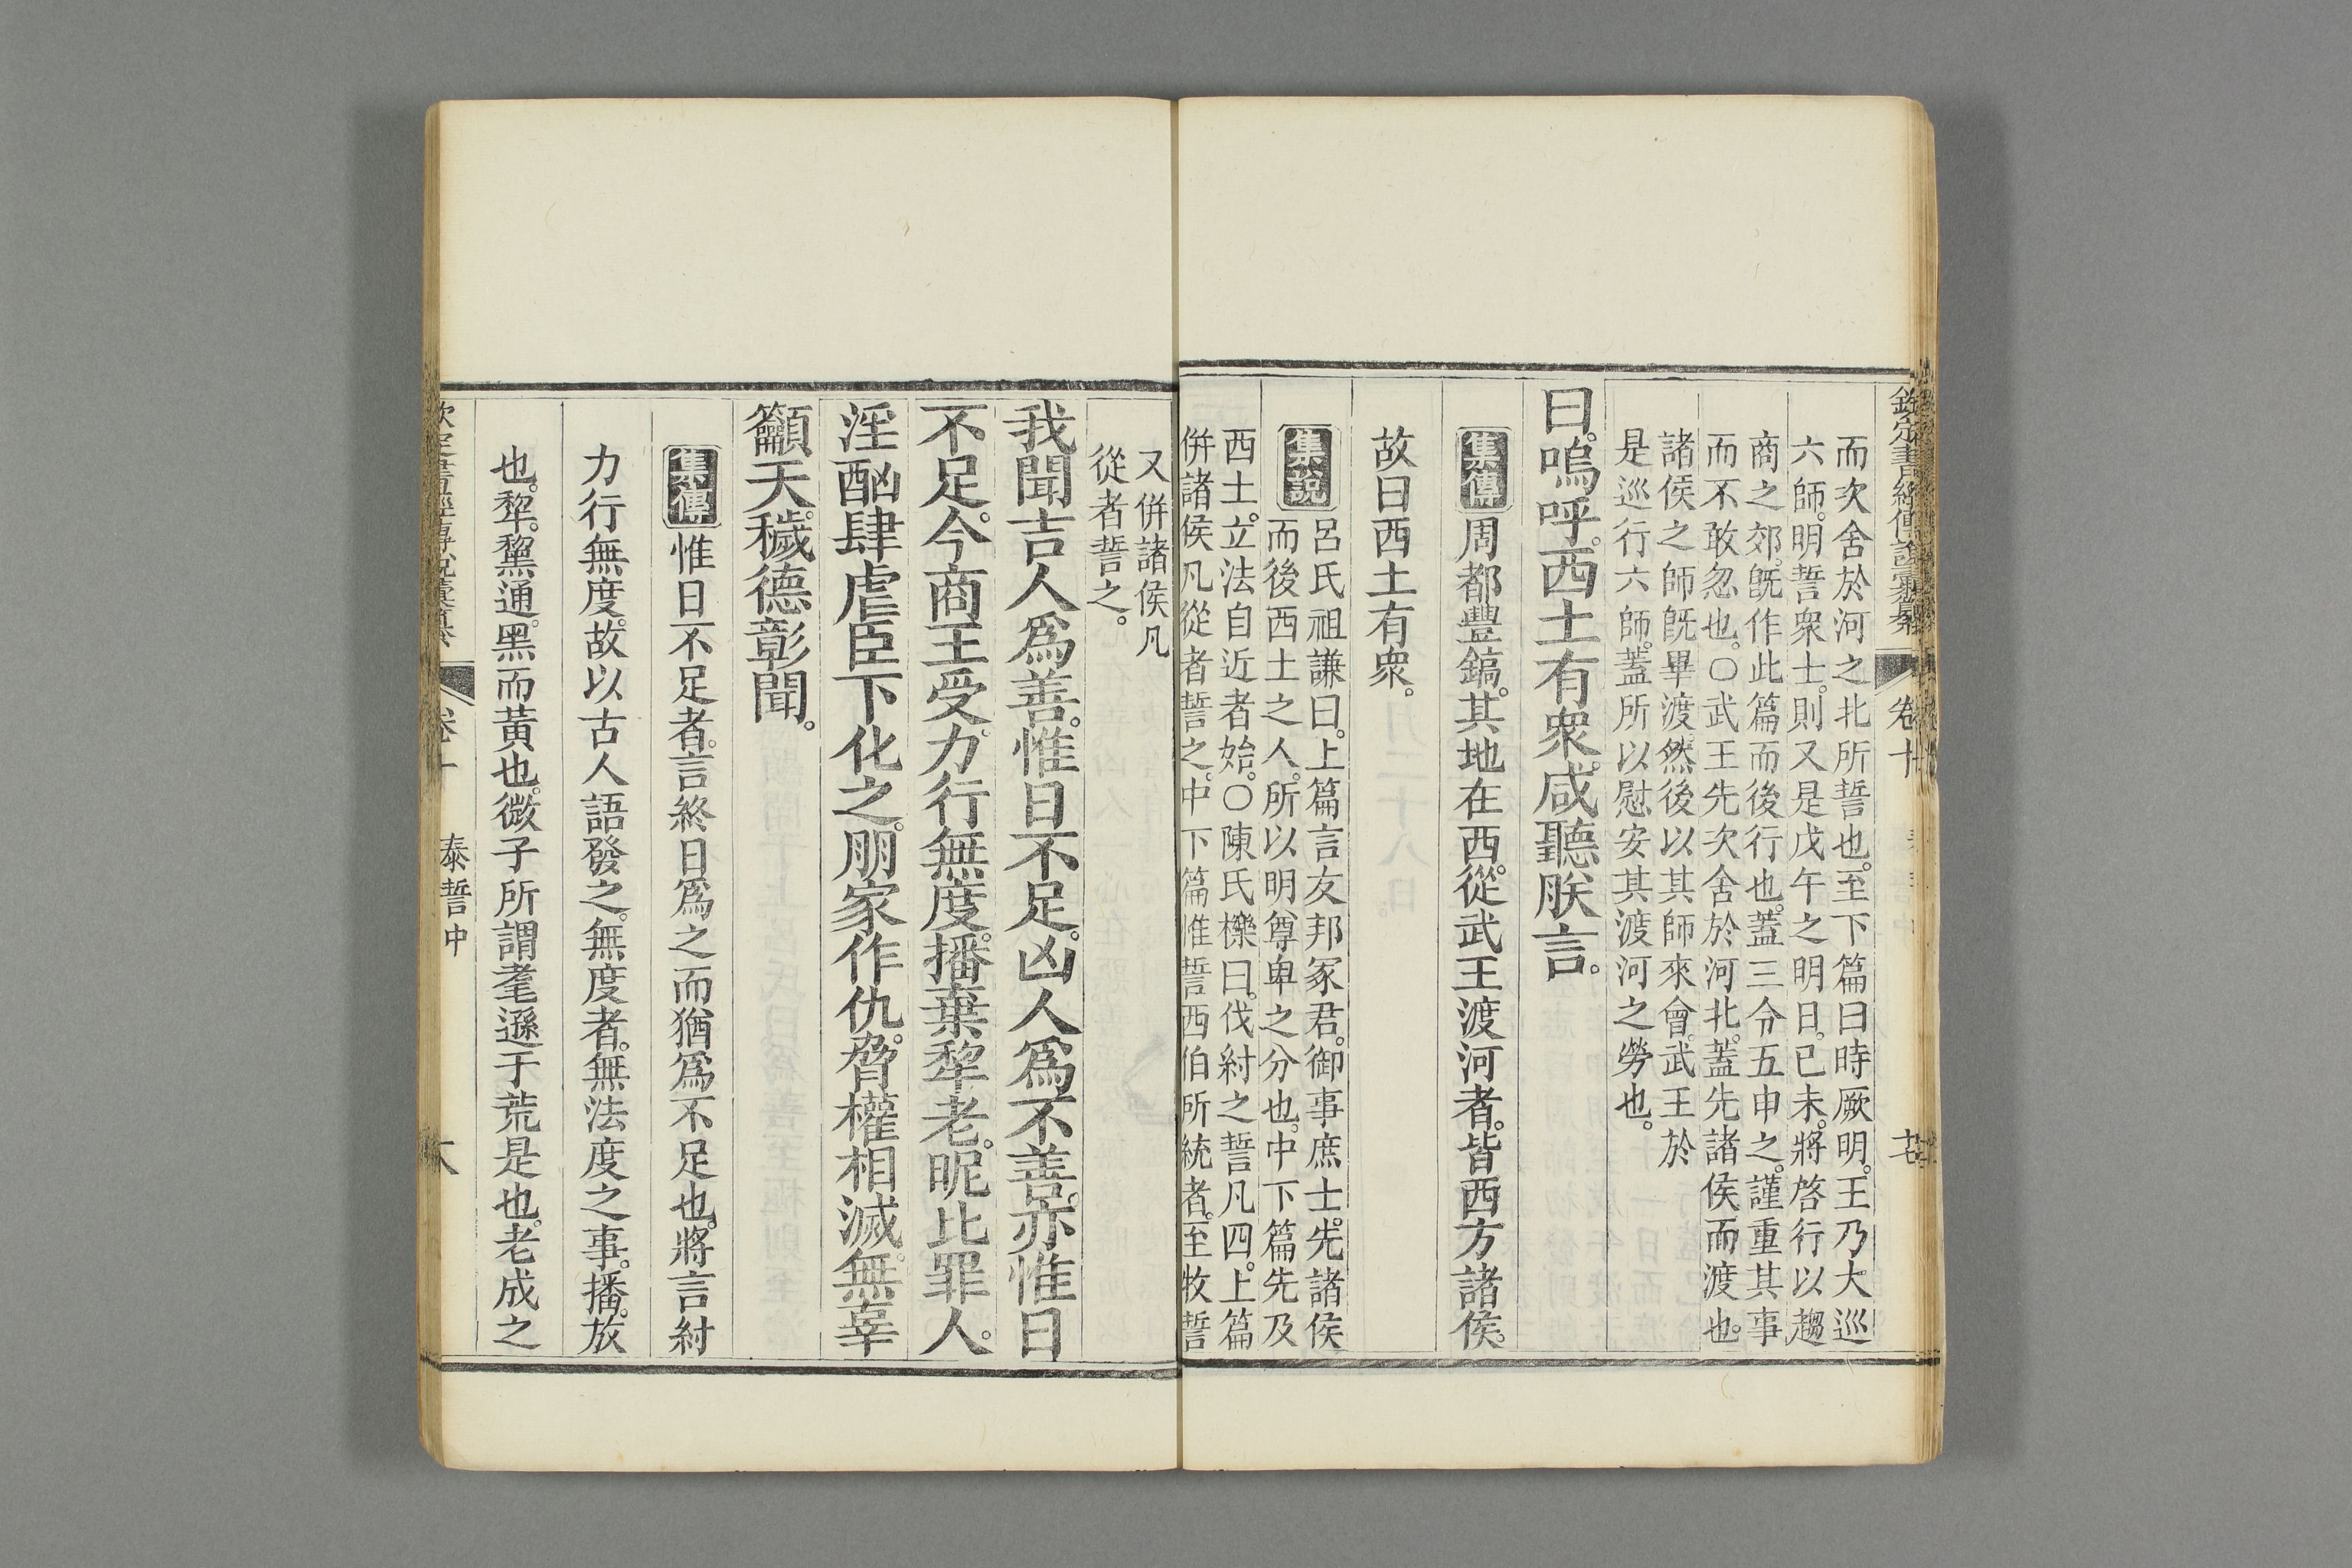 欽定書經傳說彙纂 卷十
而次舍於河之北所誓也。至下篇曰時厥明。王乃大巡
六師。明誓衆士。則又是戊午之明日。已未。將啓行以趨
商之郊。旣作此篇而後行也。蓋三令五申之。謹重其事
而不敢忽也。○武王先次舍於河北。蓋先諸侯而渡也。
諸侯之師旣畢渡。然後以其師來會。武王於
是巡行六師。蓋所以慰安其渡河之勞也。
曰。嗚呼。西土有衆。咸聽朕言。
集傳 周都豐鎬。其地在西。從武王渡河者。皆西方諸侯。
故曰西土有衆。
集說 呂氏祖謙曰。上篇言友邦冢君。御事庶士。先諸侯
而後西土之人。所以明尊卑之分也。中下篇先及
西土。立法自近者始。○陳氏櫟曰。伐紂之誓凡四。上篇
併諸侯凡從者誓之。中下篇惟誓西伯所統者。至牧誓
又併諸侯凡
從者誓之。
我聞吉人爲善。惟日不足。凶人爲不善。亦惟日
不足。今商王受。力行無度。播棄犂老。昵比罪人。
淫酗肆虐。臣下化之。朋家作仇。脅權相滅。無辜
籲天。穢德彰聞。
集傳 惟日不足者。言終日爲之而猶爲不足也。將言紂
力行無度。故以古人語發之。無度者。無法度之事。播。放
也。犂。黧通。黑而黃也。微子所謂耄遜于荒是也。老成之
泰誓中